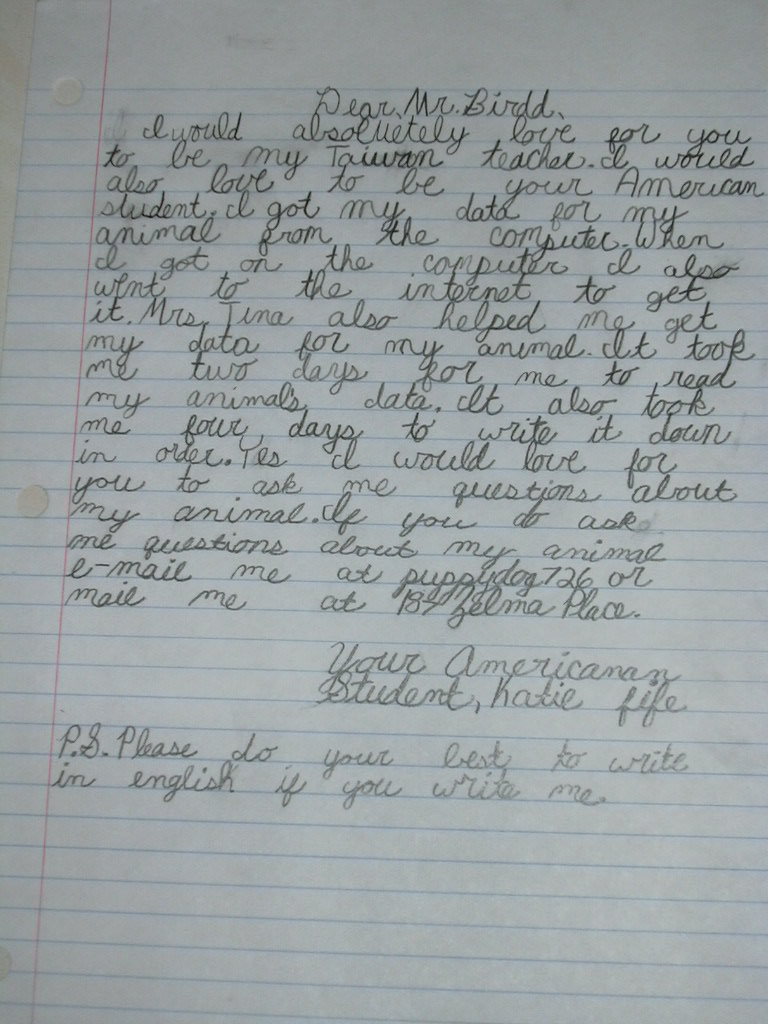 Dear, Mr. Birdd,
I would absoluetely love for you
to be my Taiwan teacher. I would
also love to be your American
student. I got my data for my
animal from the computer. When
I got on the computer I also
went to the internet to get
it. Mrs. Tina also helped me get
my data for my animal. It took
me two days for me to read
my animal's data. It also took
me four days to write it down
in order. Yes I would love for
you to ask me questions about
my animal. If you do ask
me questions about my animal
e-mail me at puppydog726 or
mail me at 187 Zelma Place.
Your Americanan
Student, Katie fife
P.S. Please do your best to write
in english if you write me.